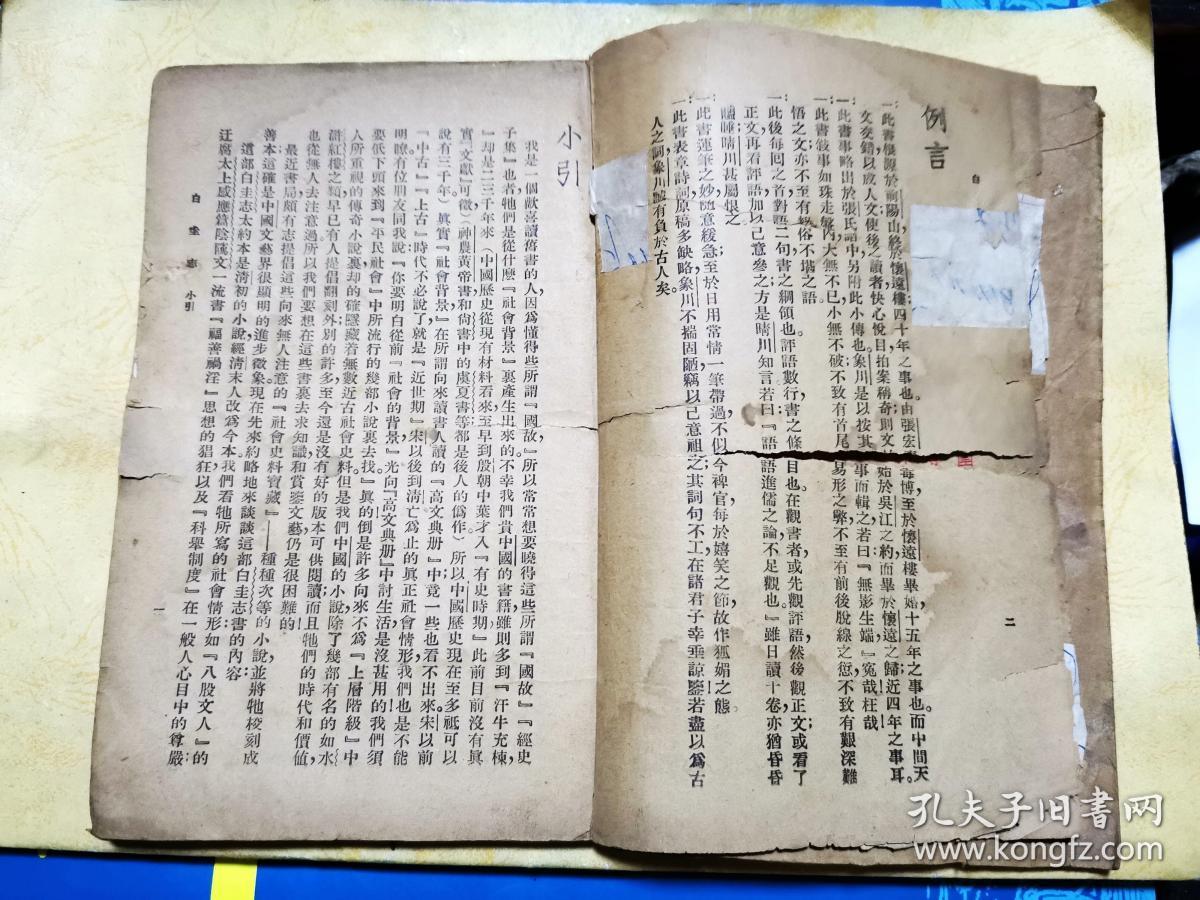 例言
一此書根源於衡陽山終於懷遠樓四十年之事也由張宏
博至於懷遠樓畢婚十五年之事也而中間天
文交錯以成人文使後之讀者快心悅目拍案稱奇則文
始於吳江之約而畢於懷遠之歸近四年之事耳。
一此書事略出於張氏譜中另附此小傳也象川是以按其
事而輯之若曰『無影生端』冤哉枉哉
一此書敍事如珠走盤內大無不已小無不破不致有首尾
易形之弊不至有前後脫線之愆不致有艱深難
悟之文亦不至有粗俗不堪之語
一此後每回之首對語二句書之綱領也評語數行書之條目也在觀書者或先觀評語然後觀正文或看了
正文再看評語加以己意參之方是晴川知言若曰『語語進儒之論不足觀也』雖日讀十卷亦猶昏昏
瞌睡晴川甚屬恨之
一此書運筆之妙隨意緩急至於日用常情一筆帶過不似今稗官每於嬉笑之節故作狐媚之態
一此書表章詩詞原稿多缺略象川不揣固陋竊以己意祖之其詞句不工在諸君子幸垂諒鑒若盡以爲古
人之詞象川誠有負於古人矣。
白
二
小引
我是一個歡喜讀舊書的人因爲懂得些所謂『國故』所以常常想要曉得這些所謂『國故』『經史
子集』也者牠們是從什麼『社會背景』裏產生出來的不幸我們貴中國的書籍雖則多到『汗牛充棟』
却是二三千年來（中國歷史從現有材料看來至早到殷朝中葉才入『有史時期』此前目前沒有眞
實『文獻』可徵）（神農黃帝書和尙書中的虞夏書等都是後人的僞作）所以中國歷史現在至多祗可以
說有三千年。）眞實『社會背景』在所謂向來讀書人讀的『高文典册』中竟一些也看不出來宋以前
『中古』『上古』時代不必說了就是『近世期』宋以後到淸亡爲止的眞正社會情形我們也是不能
明瞭有位朋友同我說『你要明白從前『社會的背景』光向『高文典册』中討生活是沒甚用的我們須
要低下頭來到『平民社會』中所流行的幾部小說裏去找』眞的倒是許多向來不爲『上層階級』中
人所重視的傳奇小說裏却的確隱藏着無數近古社會史料但是我們中國的小說除了幾部有名的如水
滸紅樓之類早已有人提倡翻刻外別的許多至今還是沒有好的版本可供閱讀而且牠們的時代和價値
也從無人去注意過所以我們要想在這些書裏去求知識和賞鑒文藝仍是很困難的
最近書局頗有志提倡這些向來無人注意的『社會史料寶藏』——種種次等的小說並將牠校刻成
善本這確是中國文藝界很顯明的進步徵象現在先來約略地來談談這部白圭志書的內容
這部白圭志太約本是淸初的小說經淸末人改爲今本我們看牠所寫的社會情形如『八股文人』的
迂腐太上感應篇陰隲文一流書『福善禍淫』思想的猖狂以及『科舉制度』在一般人心目中的尊嚴
白圭志　小引
一
孔夫子旧书网
www.kongfz.com